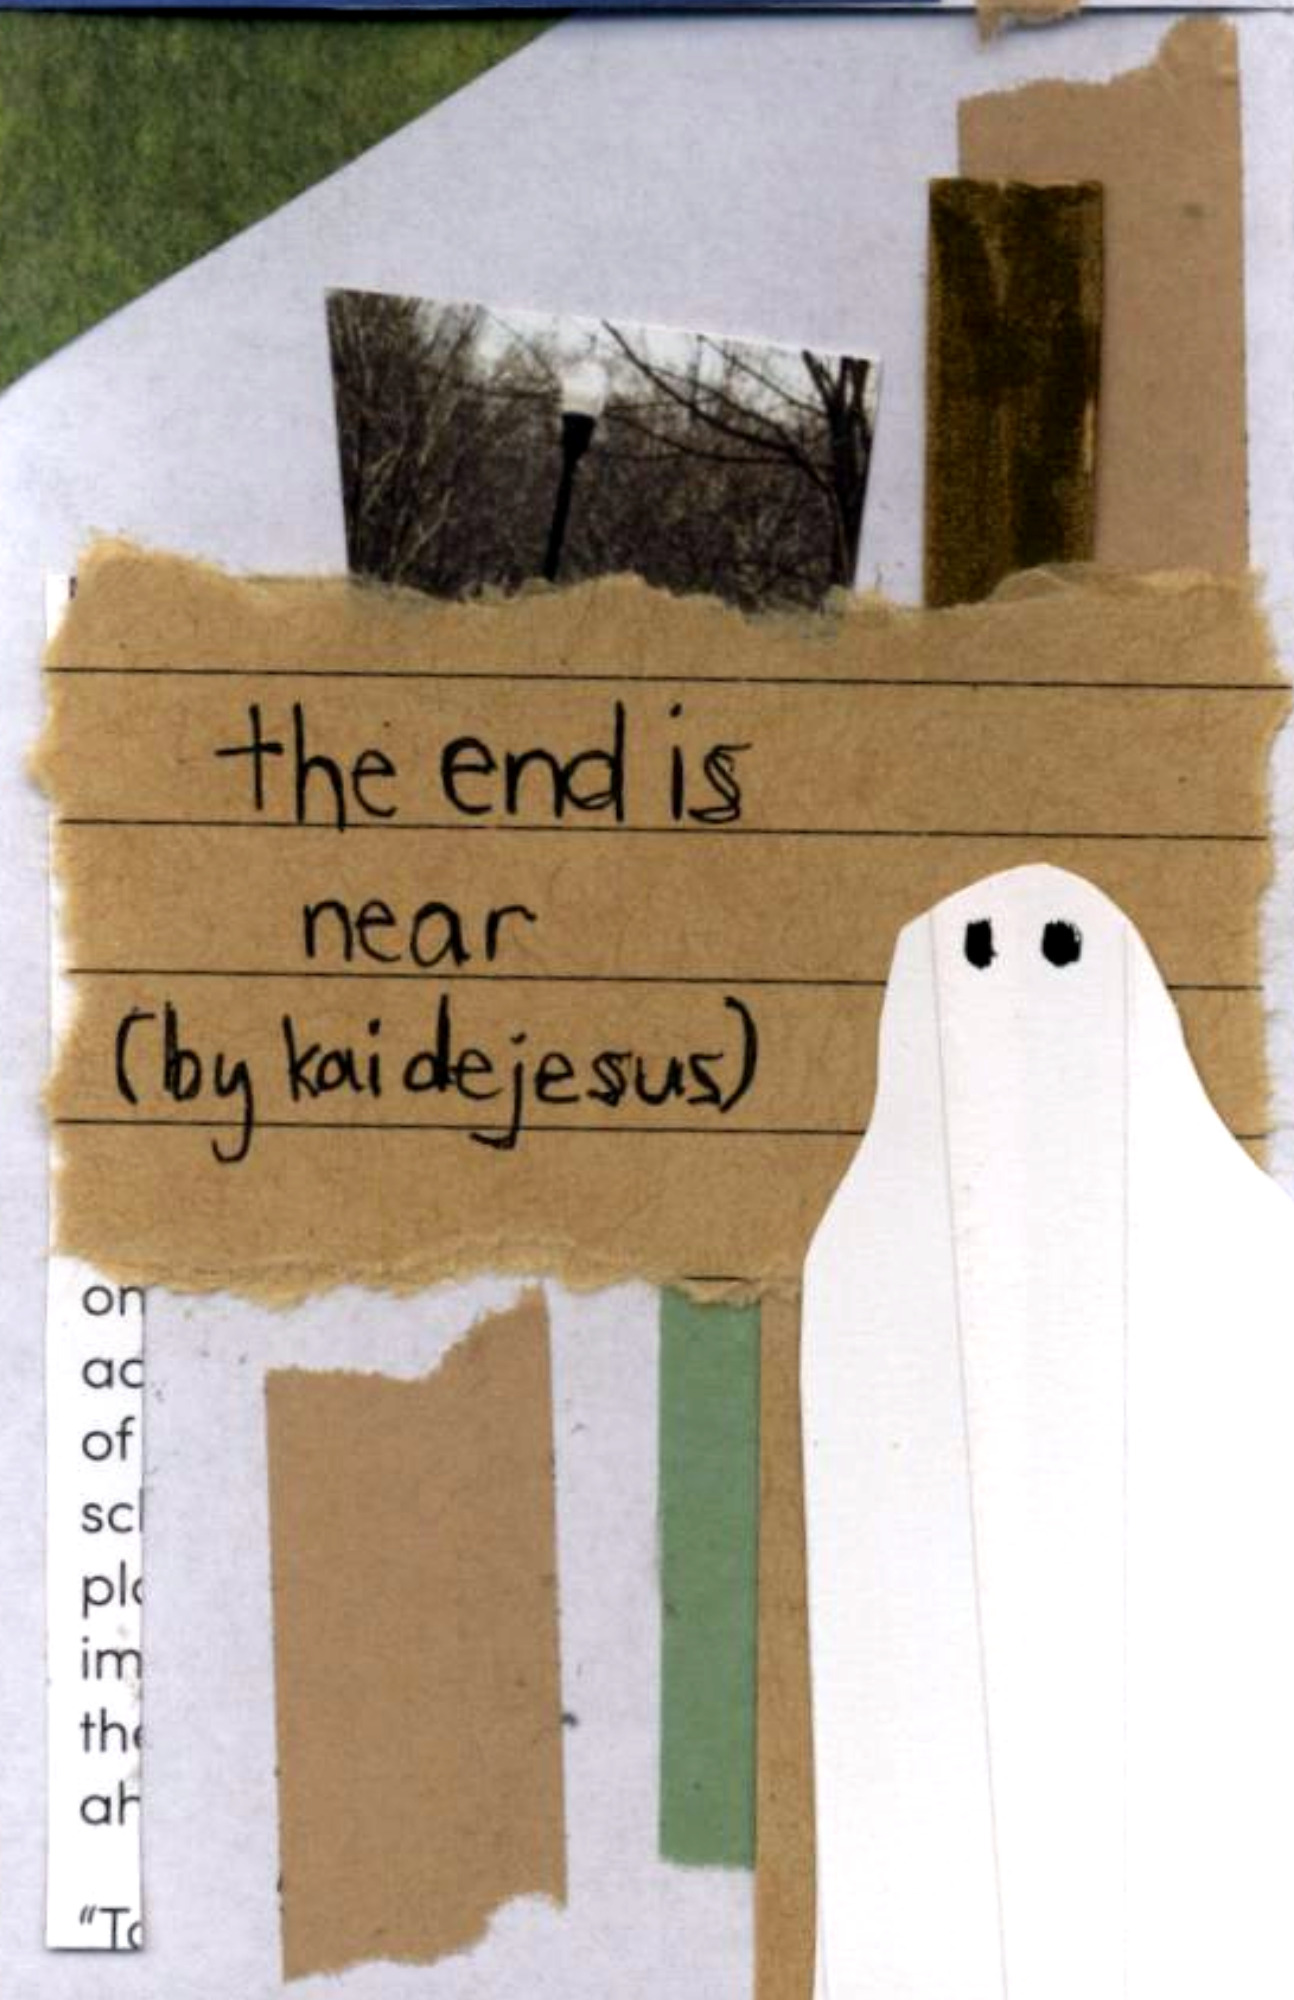 the end is
near
(by kai dejesus)
on
ac
of
scl
pl
im
the
ah
"To